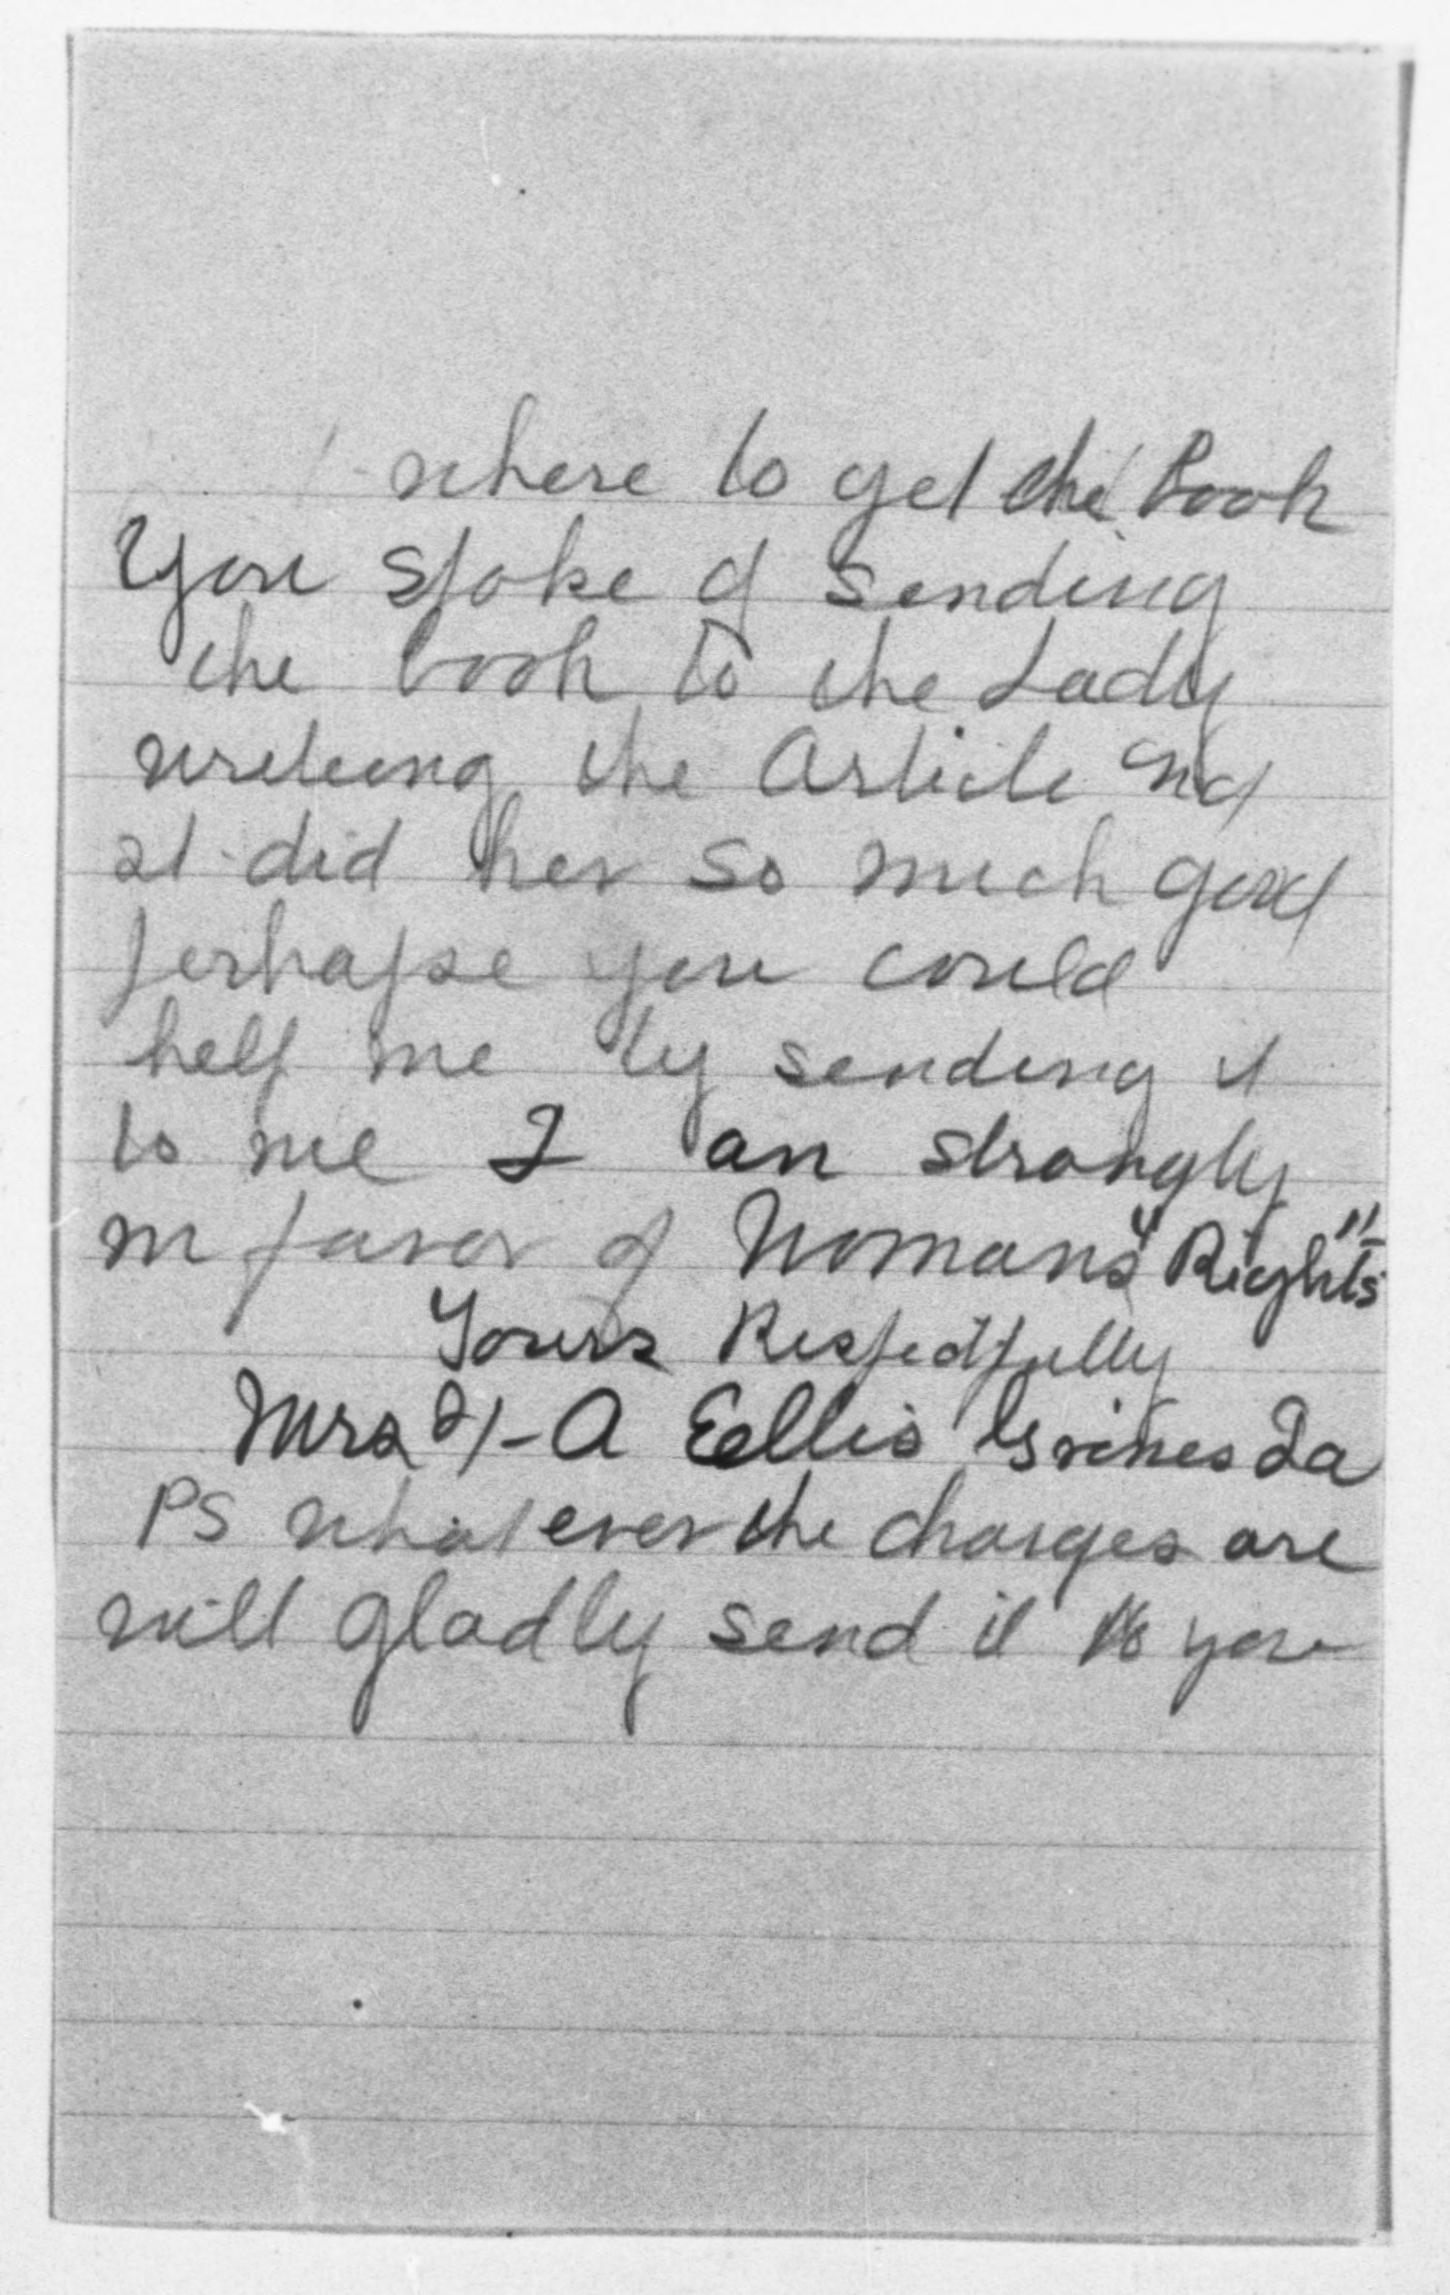 where to get the Book
You spoke of sending
the book to the Lady
writeing the Article and
it did her so much good
perhapse you could
help me by sending it
to me I am strongly
in favor of Womans "Rights"
Yours Respectfully
Mrs A Ellis Grimes Ia
PS what ever the charges are
will gladly send it to you